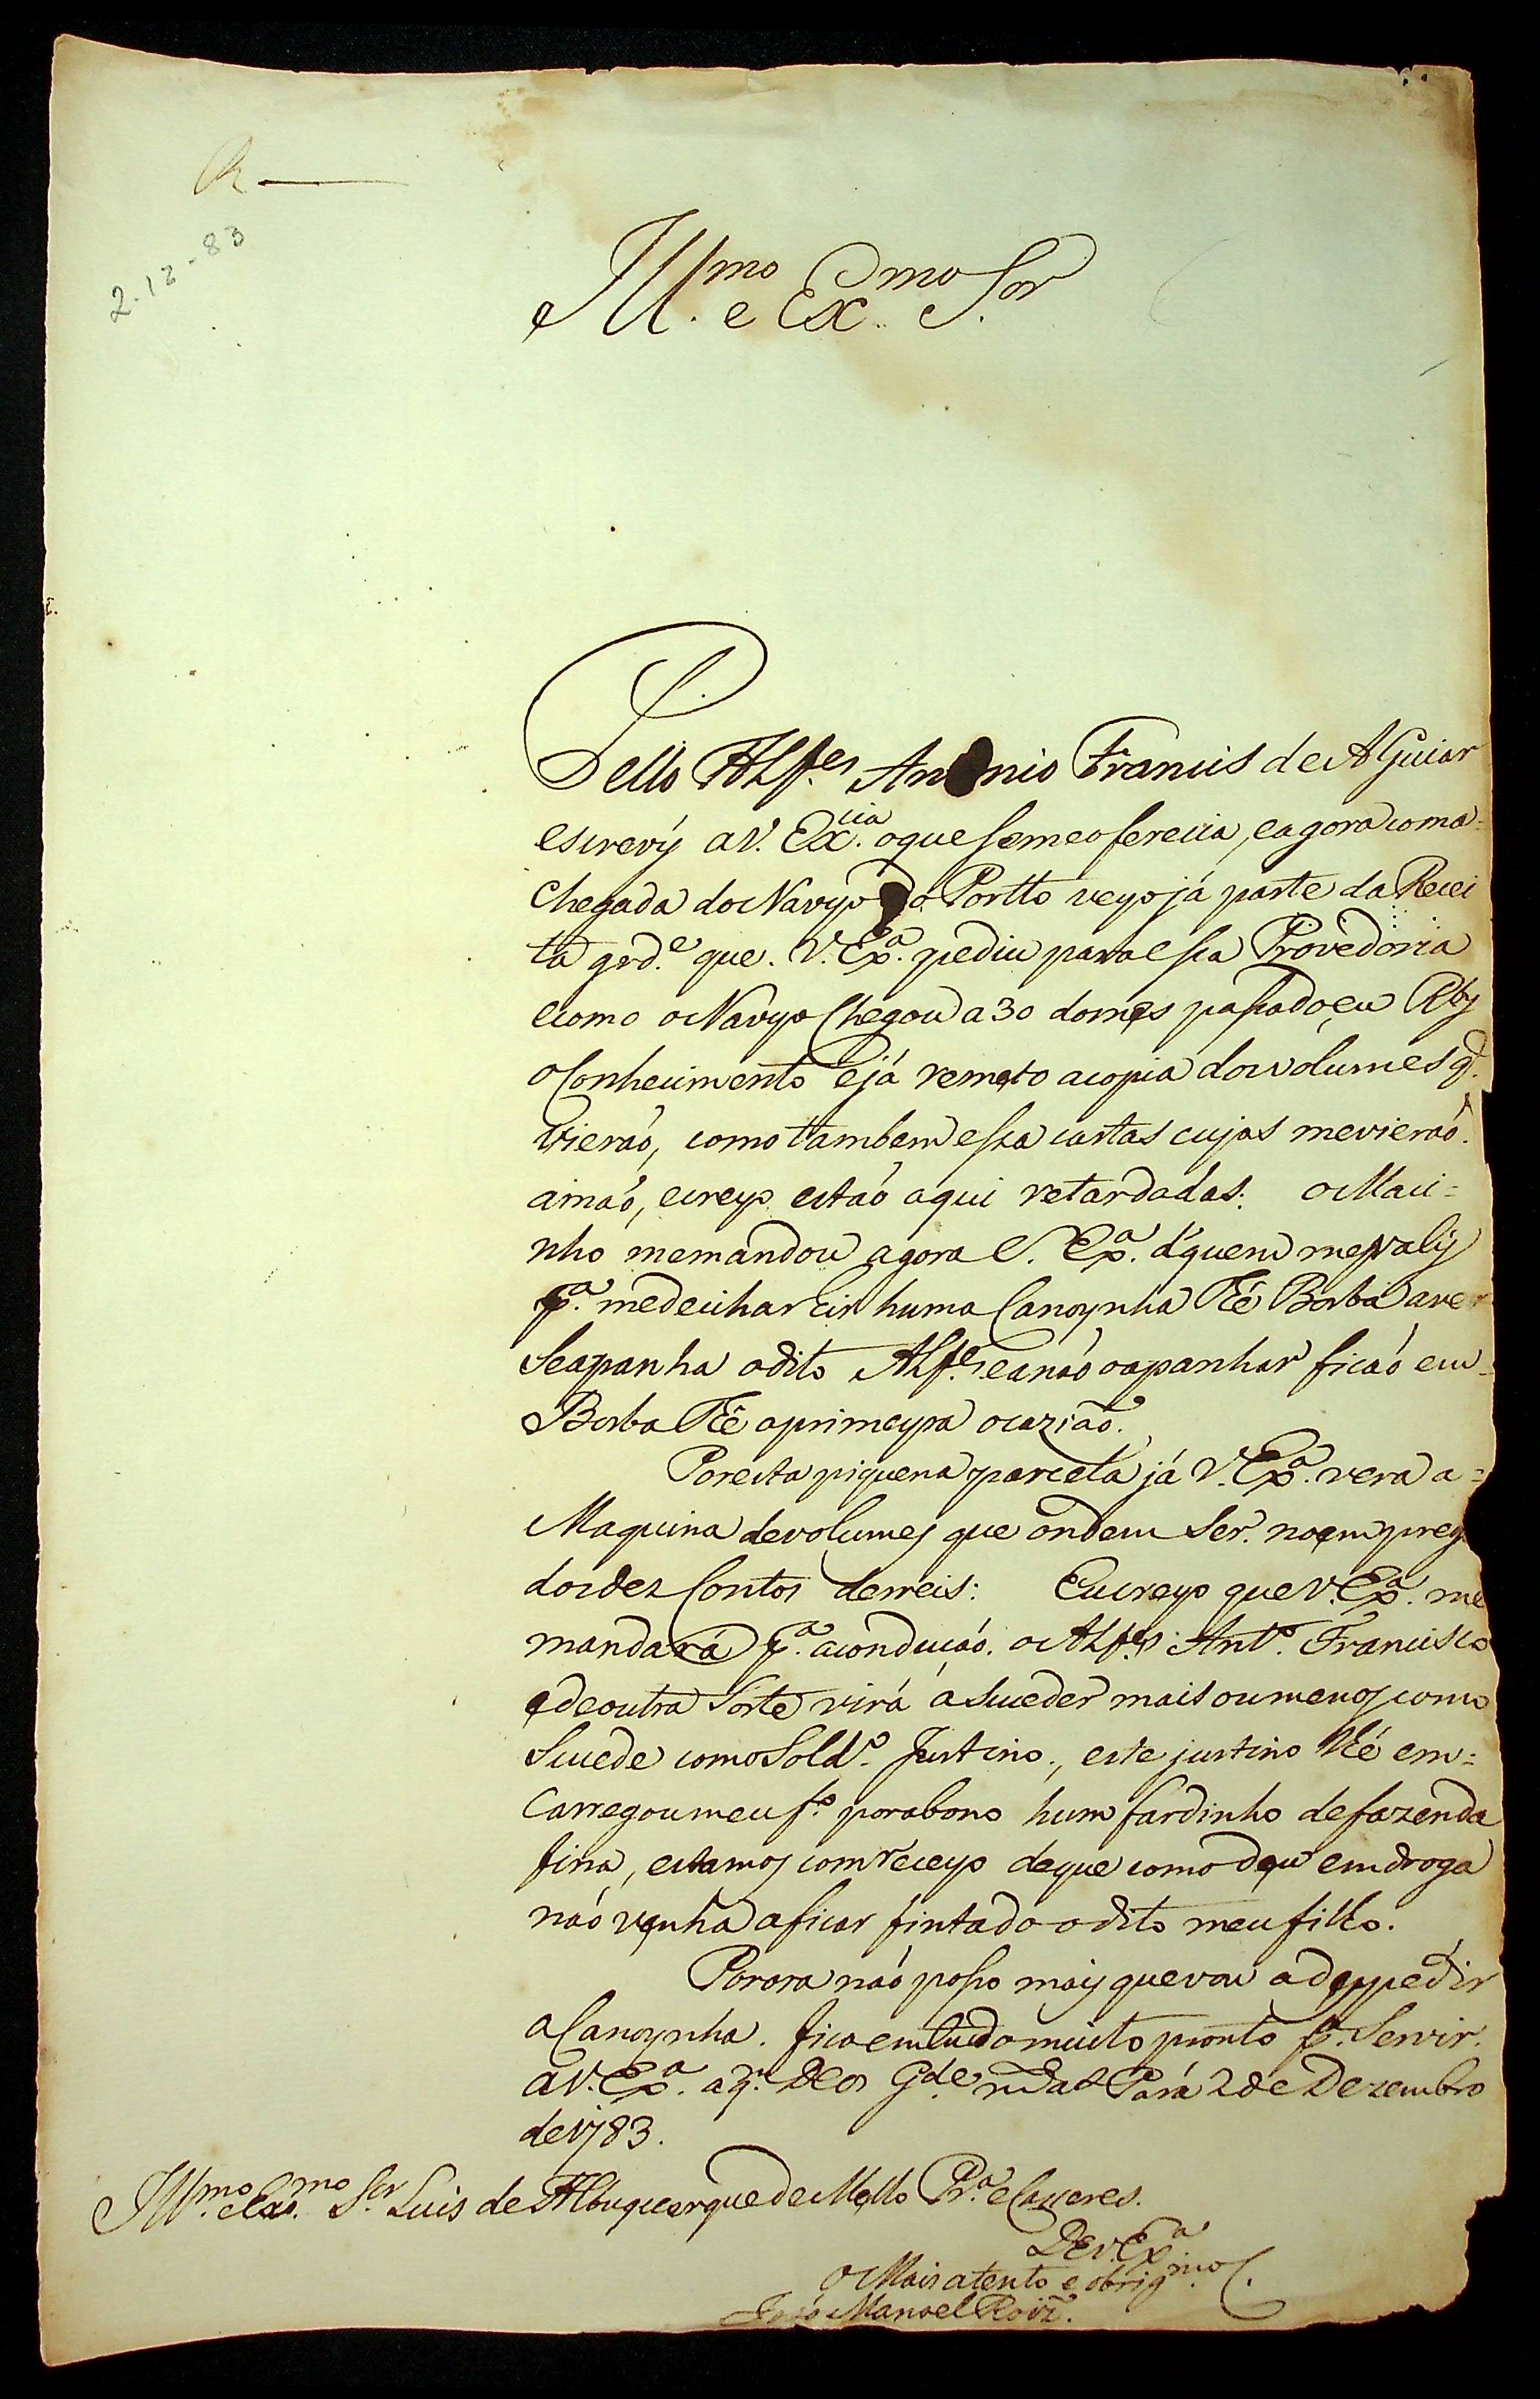 R
2-12-83
Ill.mo e Ex.mo S.or
Pello Alf.es Antonio Francis de Aguiar
escrevý a V. Ex.cia o que se me oferecia, e agora com a
Chegada do Navyo do Portto veyo já parte da Recei
ta grd.e que V. Ex.a pediu para essa Provedoria
e como o Navyo Chegou a 30 do mes passado eu Rby
o Conhecimento e já remeto a copia dos volumes q.
vieraó, como tambem essa cartas cujas me vieraó
a maó, e creyo estaó aqui retardadas. o Maci=
nho me mandou agora V. Ex.a d'quem me valy
p.a me deichar hir huma Canoynha thé Borba a ver
Se apanha o dito Alf.es e a naó o apanhar ficaó em
Borba thé a primeyra ocaziaó.
Por esta piquena parcela já V. Ex.a vera a=
Maquina de volumes que ondem Ser no empreg
dos dez Contos de reis: Eu creyo que V. Ex.a me
mandará p.a a conducaó o Alf.es Ant.o Francisco
e de outra Sorte virá á suceder mais ou menos como
Sucede com o Sold.o Justino, este justino lhé em=
Carregou meu f.o por abono hum fardinho de fazenda
fina, estamos com receyo de que como deu em droga
naó venha a ficar fintado o dito meu filho.
Por ora naó posso mais que vou a deppedir
a Canoynha. fico em tudo muito pronto p.a Servir
a V. Ex.a a q.m Deos G.de m.s a.s Pará 2 de Dezembro
de 1783.
Ill.mo e Ex.mo S.or Luis de Albuquerque de Mello Pr.a e Caceres.
De V. Ex.a
o Mais atento e obrig.mo C.
João Manoel Roiz.